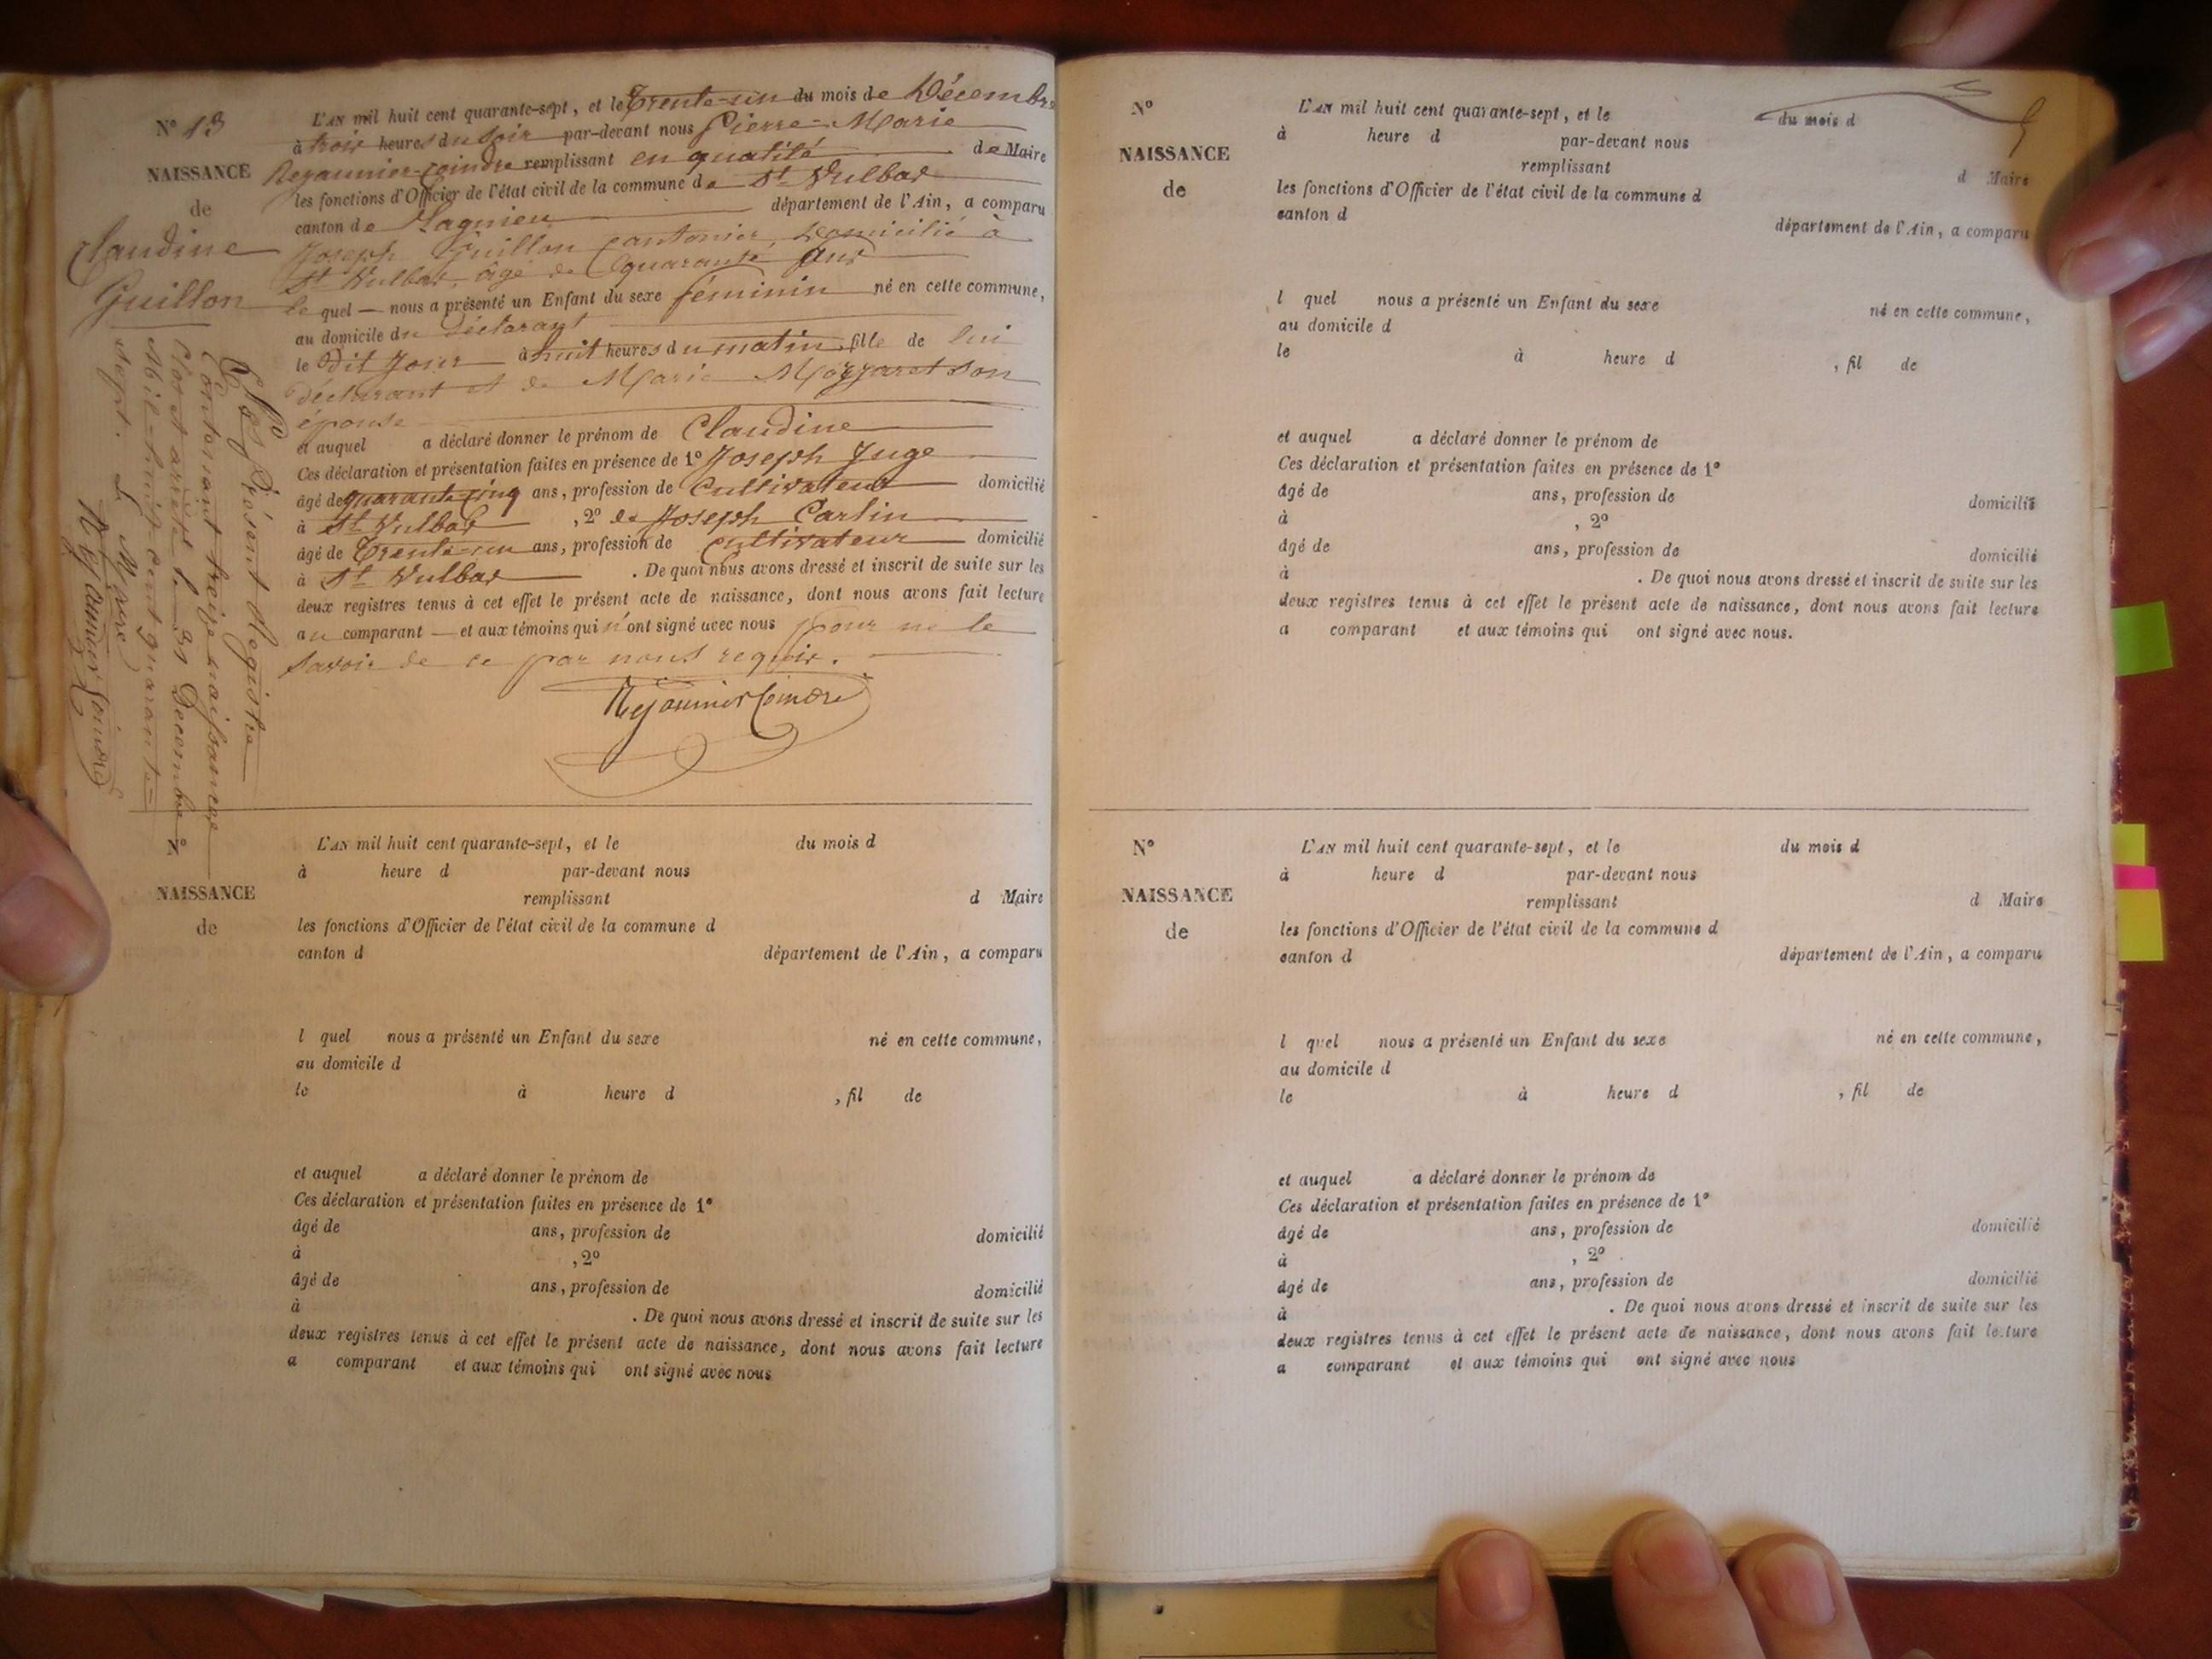 N° 13
NAISSANCE
de
Claudine
Guillon
L'AN mil huit cent quarante-sept, et le Trente-un du mois de Décembre
à trois heures du soir par-devant nous Pierre-Marie
Rejaunier-Coindre remplissant en qualité de Maire
les fonctions d'Officier de l'état civil de la commune de St Vulbas
canton de Lagnieu département de l'Ain, a comparu
Joseph Guillon cantonier, domicilié à
St Vulbas, âgé de quarante ans
le quel nous a présenté un Enfant du sexe féminin né en cette commune,
au domicile du déclarant
le dit jour à huit heures du matin, fille de lui
déclarant et de Marie Mozzaret son
épouse
et auquel a déclaré donner le prénom de Claudine
Ces déclaration et présentation faites en présence de 1° Joseph Juge
âgé de quarante cinq ans, profession de Cultivateur domicilié
à St Vulbas, 2° de Joseph Carlin
âgé de Trente-un ans, profession de cultivateur domicilié
à St Vulbas. De quoi nous avons dressé et inscrit de suite sur les
deux registres tenus à cet effet le présent acte de naissance, dont nous avons fait lecture
au comparant et aux témoins qui n'ont signé avec nous pour ne le
savoir de ce par nous requis.
Rejaunier Coindre
Le Présent Registre
Contenant treize naissances
Clos et arrêté le 31 Decembre
Mil-huit-cent quarante-
sept. Le Maire
Rejaunier Coindre
N°
NAISSANCE
de
L'AN mil huit cent quarante-sept, et le du mois d
à heure d par-devant nous
remplissant d Maire
les fonctions d'Officier de l'état civil de la commune d
canton d département de l'Ain, a comparu
l quel nous a présenté un Enfant du sexe né en cette commune,
au domicile d
le à heure d , fil de
et auquel a déclaré donner le prénom de
Ces déclaration et présentation faites en présence de 1°
âgé de ans, profession de domicilié
à , 2°
âgé de ans, profession de domicilié
à . De quoi nous avons dressé et inscrit de suite sur les
deux registres tenus à cet effet le présent acte de naissance, dont nous avons fait lecture
a comparant et aux témoins qui ont signé avec nous
N°
NAISSANCE
de
L'AN mil huit cent quarante-sept, et le du mois d
à heure d par-devant nous
remplissant d Maire
les fonctions d'Officier de l'état civil de la commune d
canton d département de l'Ain, a comparu
l quel nous a présenté un Enfant du sexe né en cette commune,
au domicile d
le à heure d , fil de
et auquel a déclaré donner le prénom de
Ces déclaration et présentation faites en présence de 1°
âgé de ans, profession de domicilié
à , 2°
âgé de ans, profession de domicilié
à . De quoi nous avons dressé et inscrit de suite sur les
deux registres tenus à cet effet le présent acte de naissance, dont nous avons fait lecture
a comparant et aux témoins qui ont signé avec nous.
N°
NAISSANCE
de
L'AN mil huit cent quarante-sept, et le du mois d
à heure d par-devant nous
remplissant d Maire
les fonctions d'Officier de l'état civil de la commune d
canton d département de l'Ain, a comparu
l quel nous a présenté un Enfant du sexe né en cette commune,
au domicile d
le à heure d , fil de
et auquel a déclaré donner le prénom de
Ces déclaration et présentation faites en présence de 1°
âgé de ans, profession de domicilié
à , 2°
âgé de ans, profession de domicilié
à . De quoi nous avons dressé et inscrit de suite sur les
deux registres tenus à cet effet le présent acte de naissance, dont nous avons fait lecture
a comparant et aux témoins qui ont signé avec nous